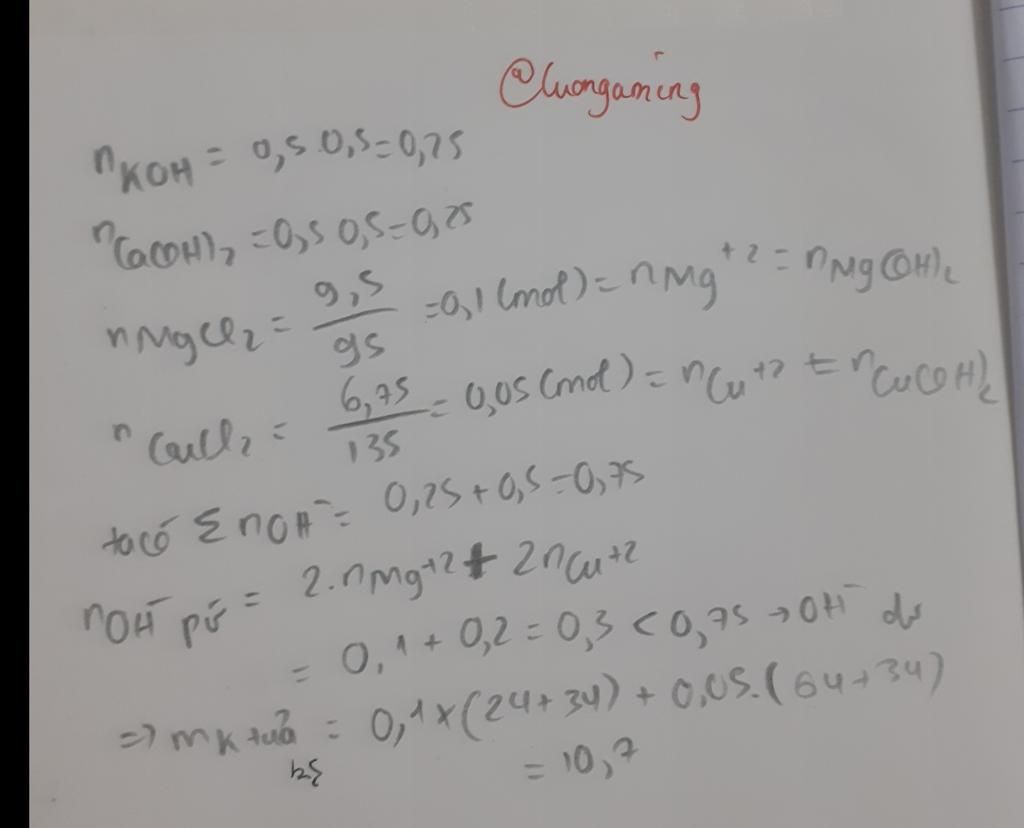 @luongaming
nKOH = 0,5.0,5=0,25
nCa(OH)2 = 0,5 0,5=0,25
nMgCl2 = 9,5/95 =0,1(mol) = nMg+2 = nMg(OH)2
nCuCl2 = 6,75/135 = 0,05(mol) = nCu+2 = nCu(OH)2
ta có Σ nOH- = 0,25+0,5=0,75
nOH- pứ = 2.nMg+2 + 2nCu+2
= 0,1 + 0,2 = 0,3 < 0,75 → OH- dư
=> mK tủa = 0,1x(24+34) + 0,05.(64+34)
= 10,7